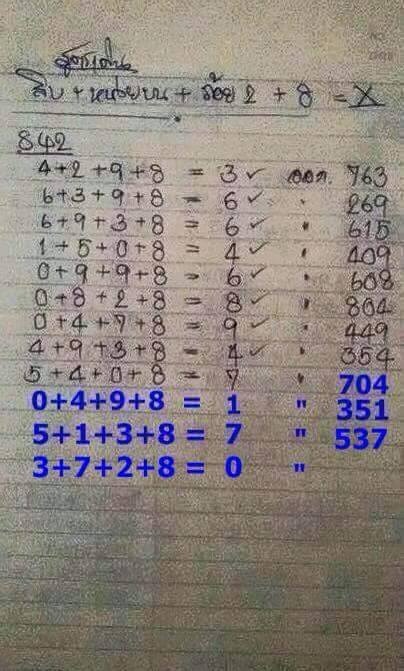 สูตรเด่น
สิบ + หน่วยบน + ร้อย 2 + 8 = X
842
4+2+9+8 = 3 ✓ ออก. 763
6+3+9+8 = 6 ✓ " 269
6+9+3+8 = 6 ✓ " 615
1+5+0+8 = 4 ✓ " 409
0+9+9+8 = 6 ✓ " 608
0+8+2+8 = 8 ✓ " 804
0+4+7+8 = 9 ✓ " 449
4+9+3+8 = 4 ✓ " 354
5+4+0+8 = 7 " 704
0+4+9+8 = 1 " 351
5+1+3+8 = 7 " 537
3+7+2+8 = 0 "